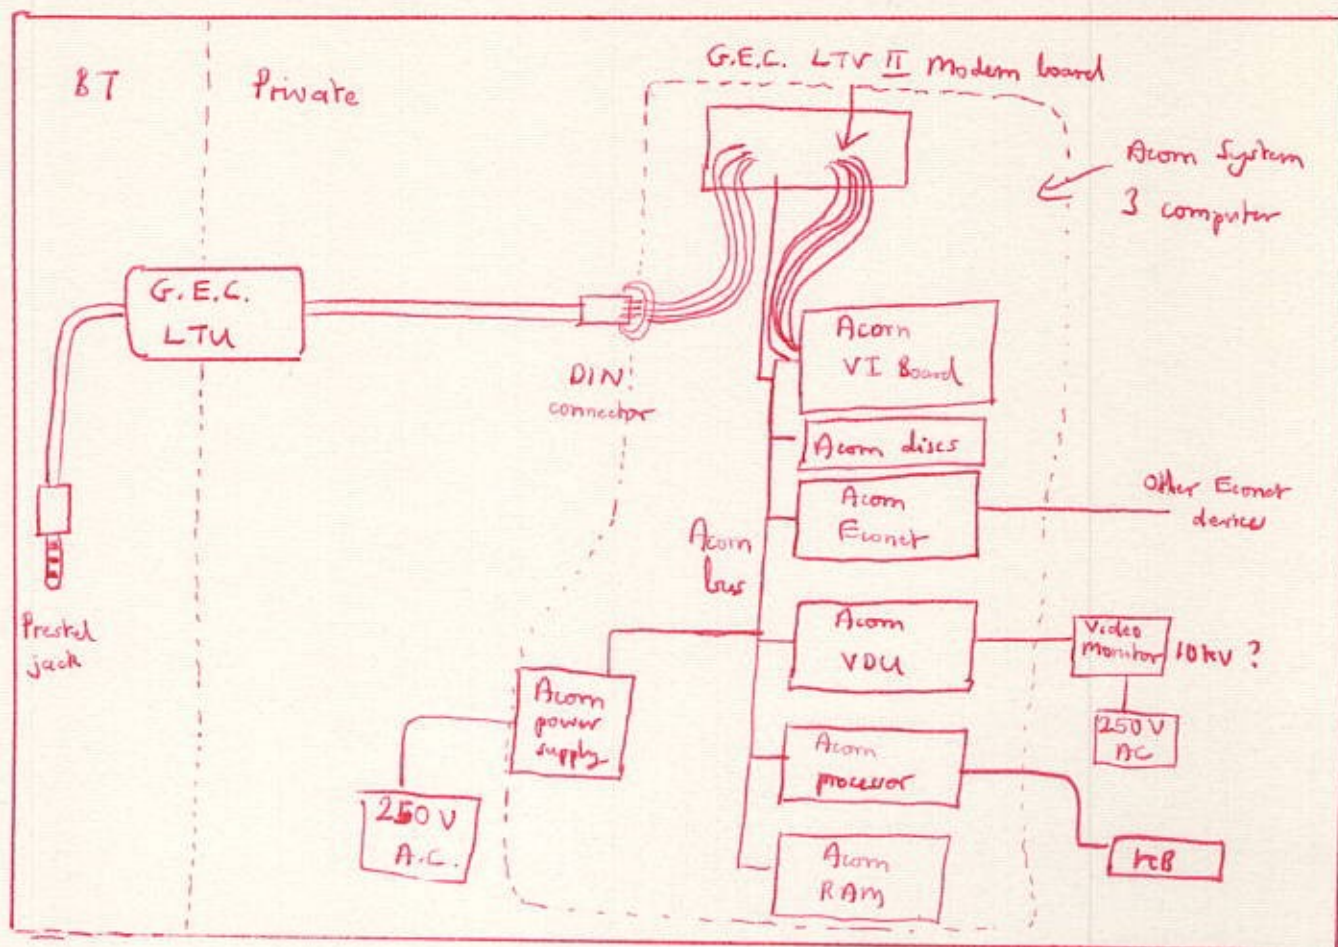 BT
Private
G.E.C. LTU II Modem board
Acorn System
3 computer
G.E.C.
LTU
DIN
connector
Acorn
VI Board
Acorn discs
Acorn
Econet
Other Econet
device
Acorn
bus
Prestel
jack
Acorn
VDU
Video
Monitor
10kV ?
250 V
AC
Acorn
power
supply
250 V
A.C.
Acorn
processor
Acorn
RAM